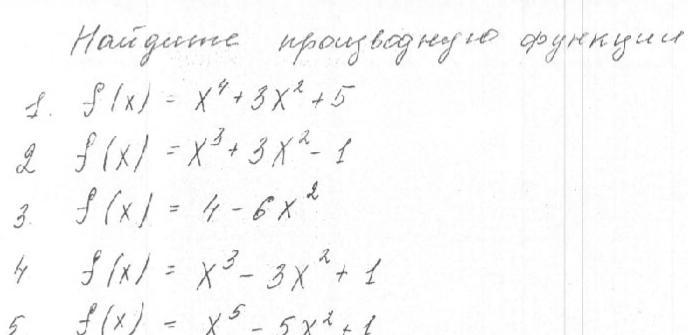 Найдите производную функции
1. f(x) = x⁴ + 3x² + 5
2 f(x) = x³ + 3x² - 1
3. f(x) = 4 - 6x²
4 f(x) = x³ - 3x² + 1
5 f(x) = x⁵ - 5x² + 1